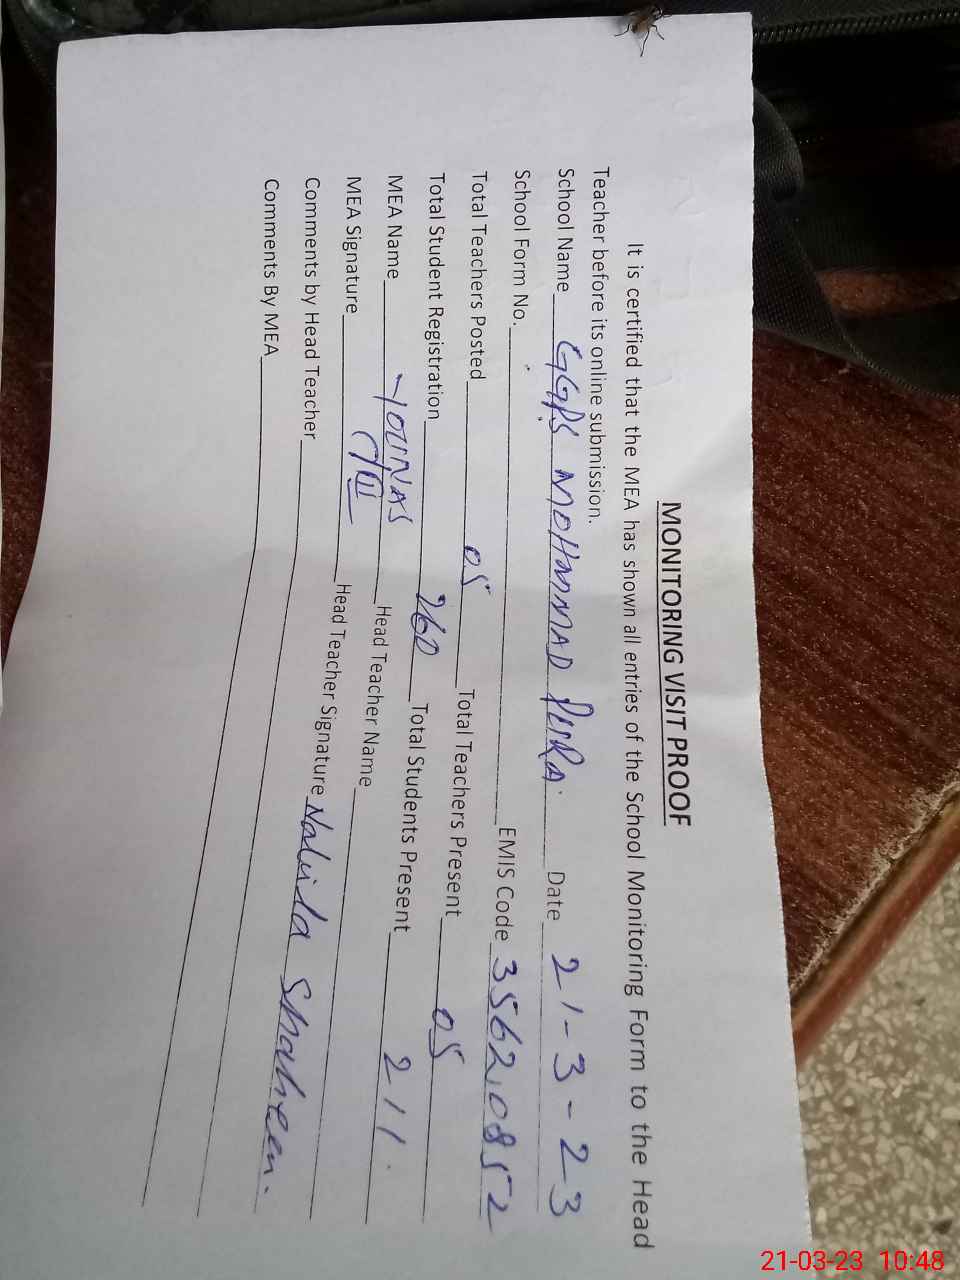 MONITORING VISIT PROOF
It is certified that the MEA has shown all entries of the School Monitoring Form to the Head
Teacher before its online submission.
School Name GGPS MOHAMMAD PURA. Date 21-3-23
School Form No. EMIS Code 35620852
Total Teachers Posted 05 Total Teachers Present 05
Total Student Registration 260 Total Students Present 211.
MEA Name YOUNAS Head Teacher Name
MEA Signature Head Teacher Signature Nahida Shaheen.
Comments by Head Teacher
Comments By MEA
21-03-23 10:48